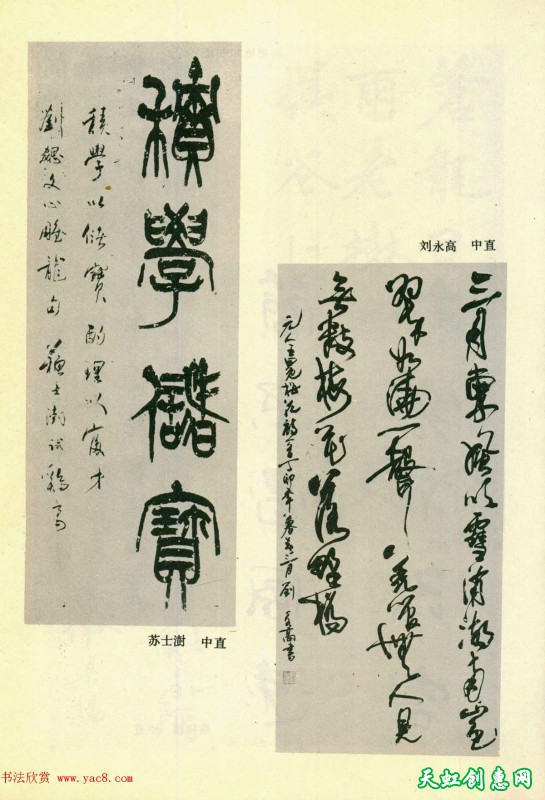 積學儲寶
積學以儲寶酌理以富才
劉勰文心雕龍句 蘇士澍試鷄毫
苏士澍 中直
刘永高 中直
三月東風吹雪消湖南山色
翠如澆一聲羌管無人見
無數梅花落野橋
元人王冕梅花詩丁卯年暮春三月劉永高書
书法欣赏 www.yac8.com
天虹创意网